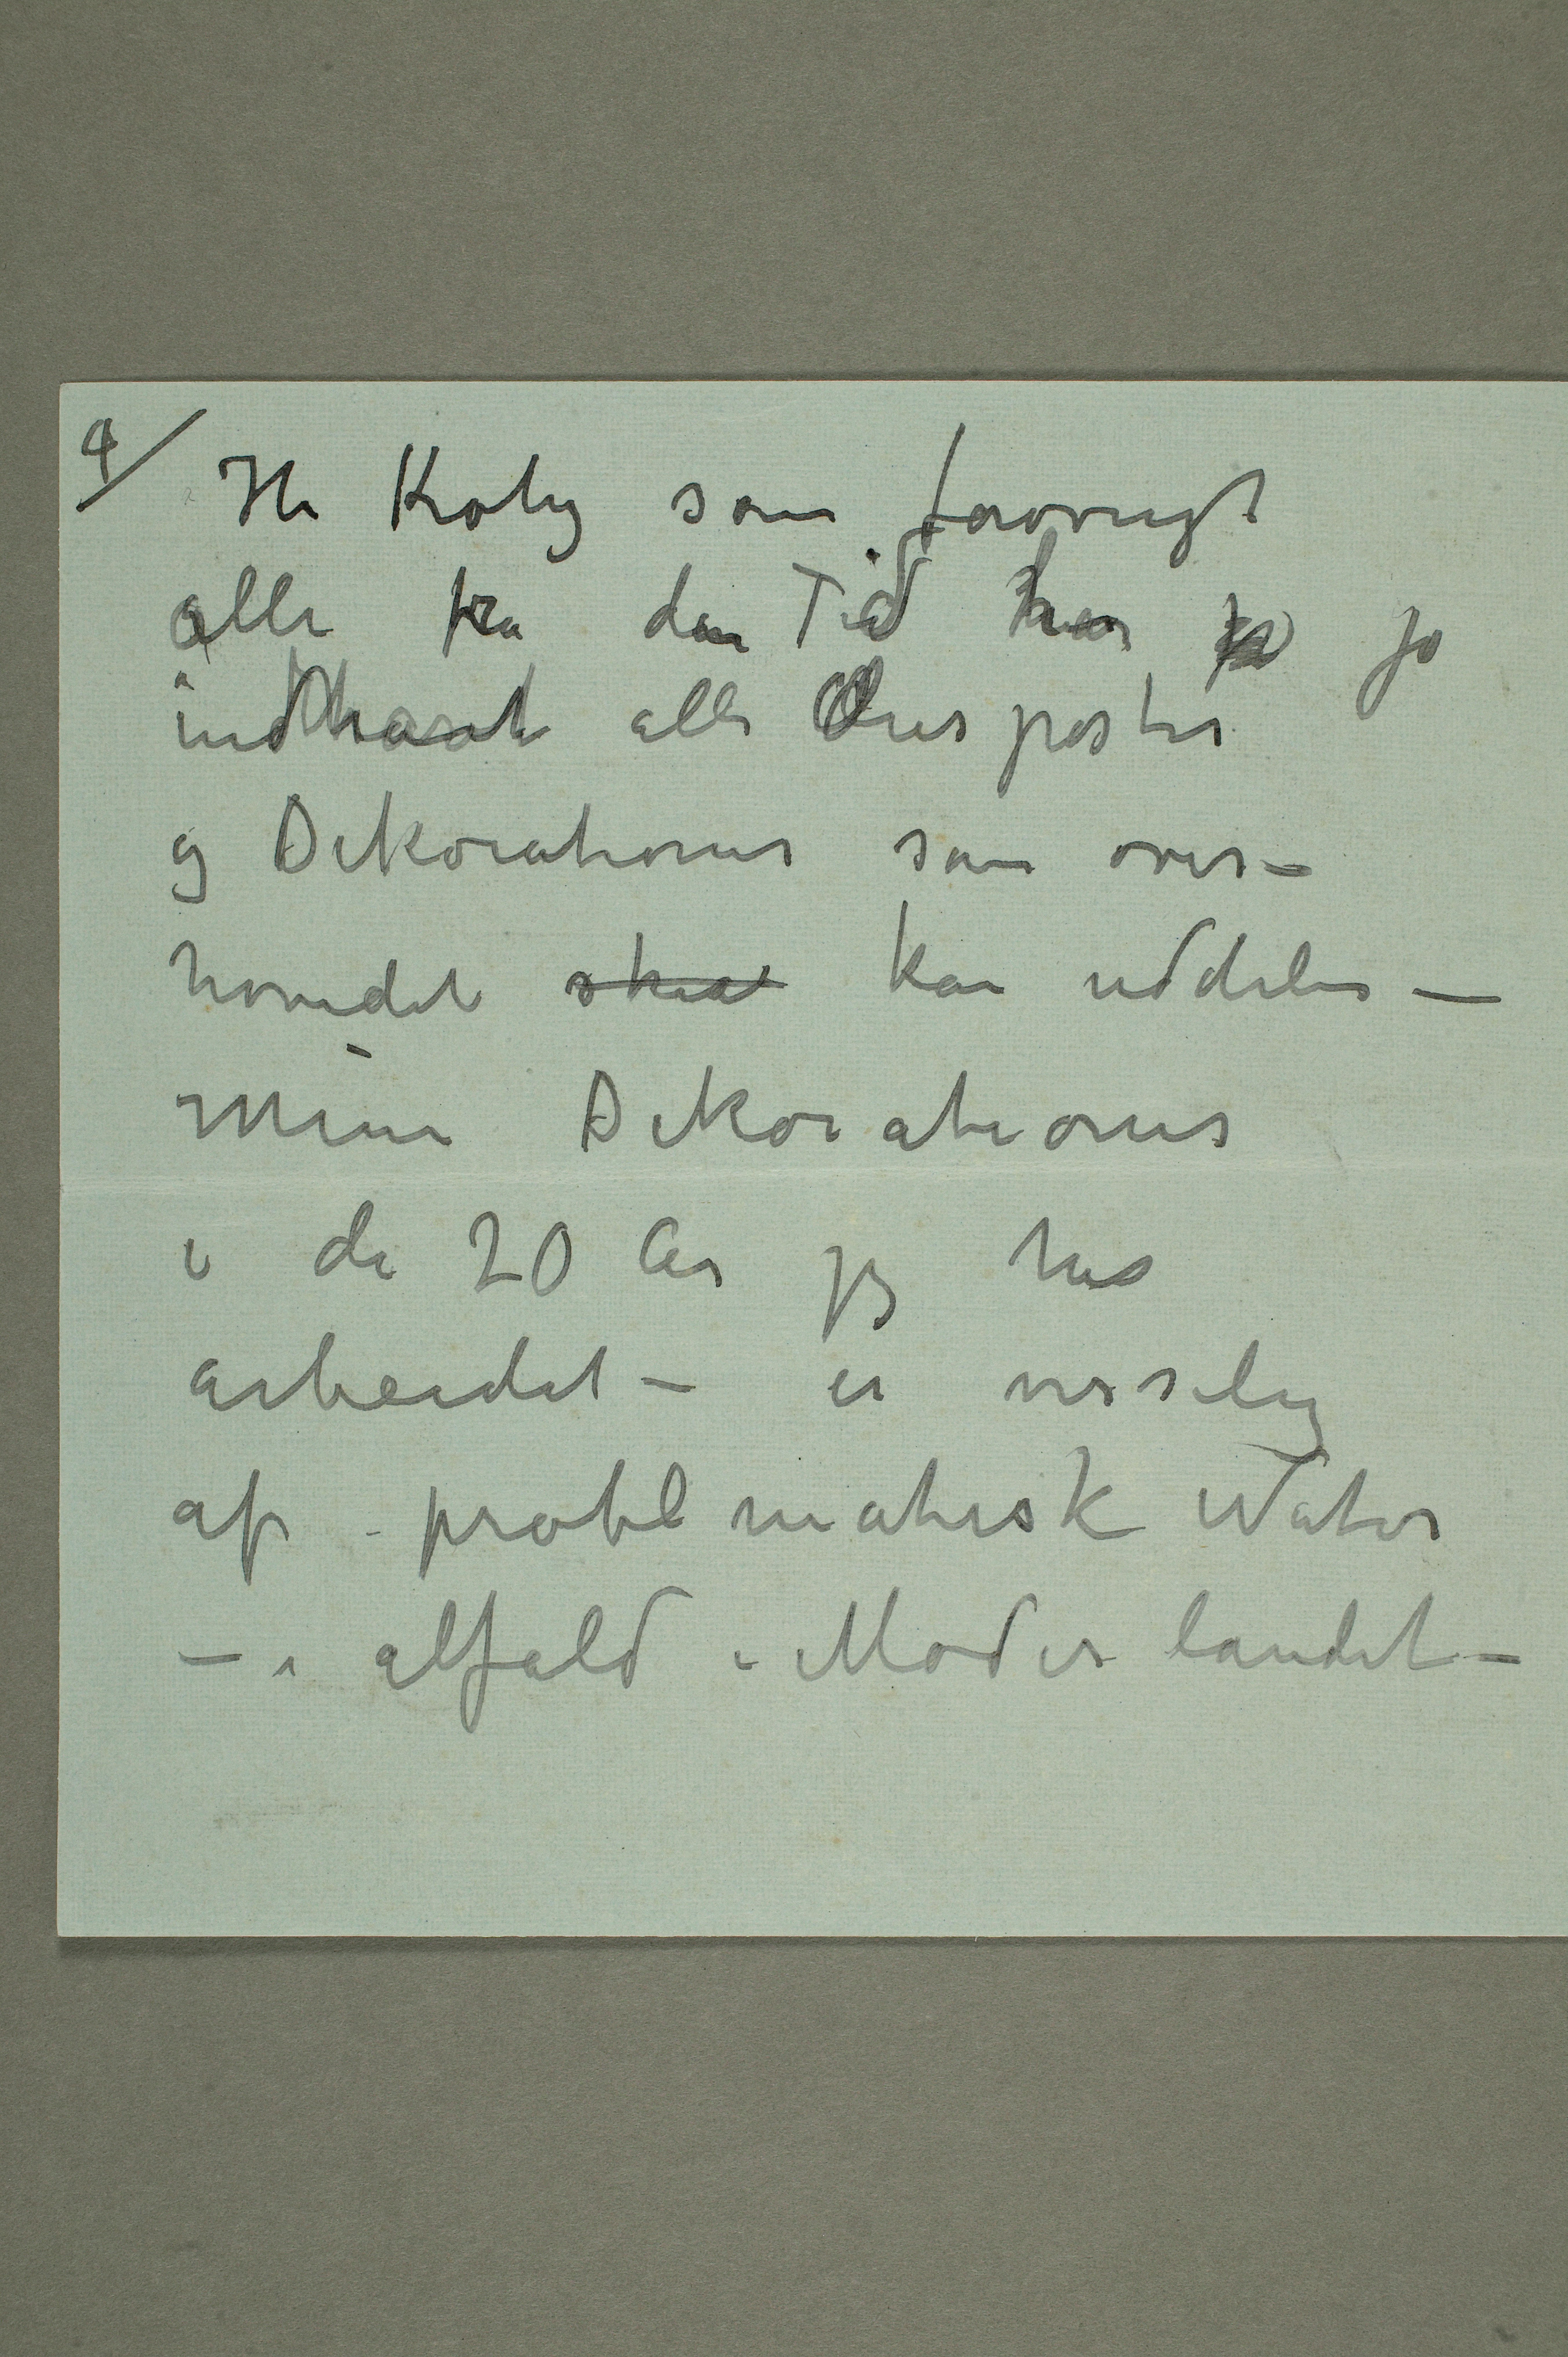 4/ Hr Krohg som forøvrigt
alle fra den Tid har jo
indhøstet alle Æresposter
og Dekorationer som over–
hovedet skal kan uddeles –
Mine Dekorationer
i de 20 Aar jeg har
arbeidet – er visselig
af problematisk Natur
– i alfald i Moderlandet –